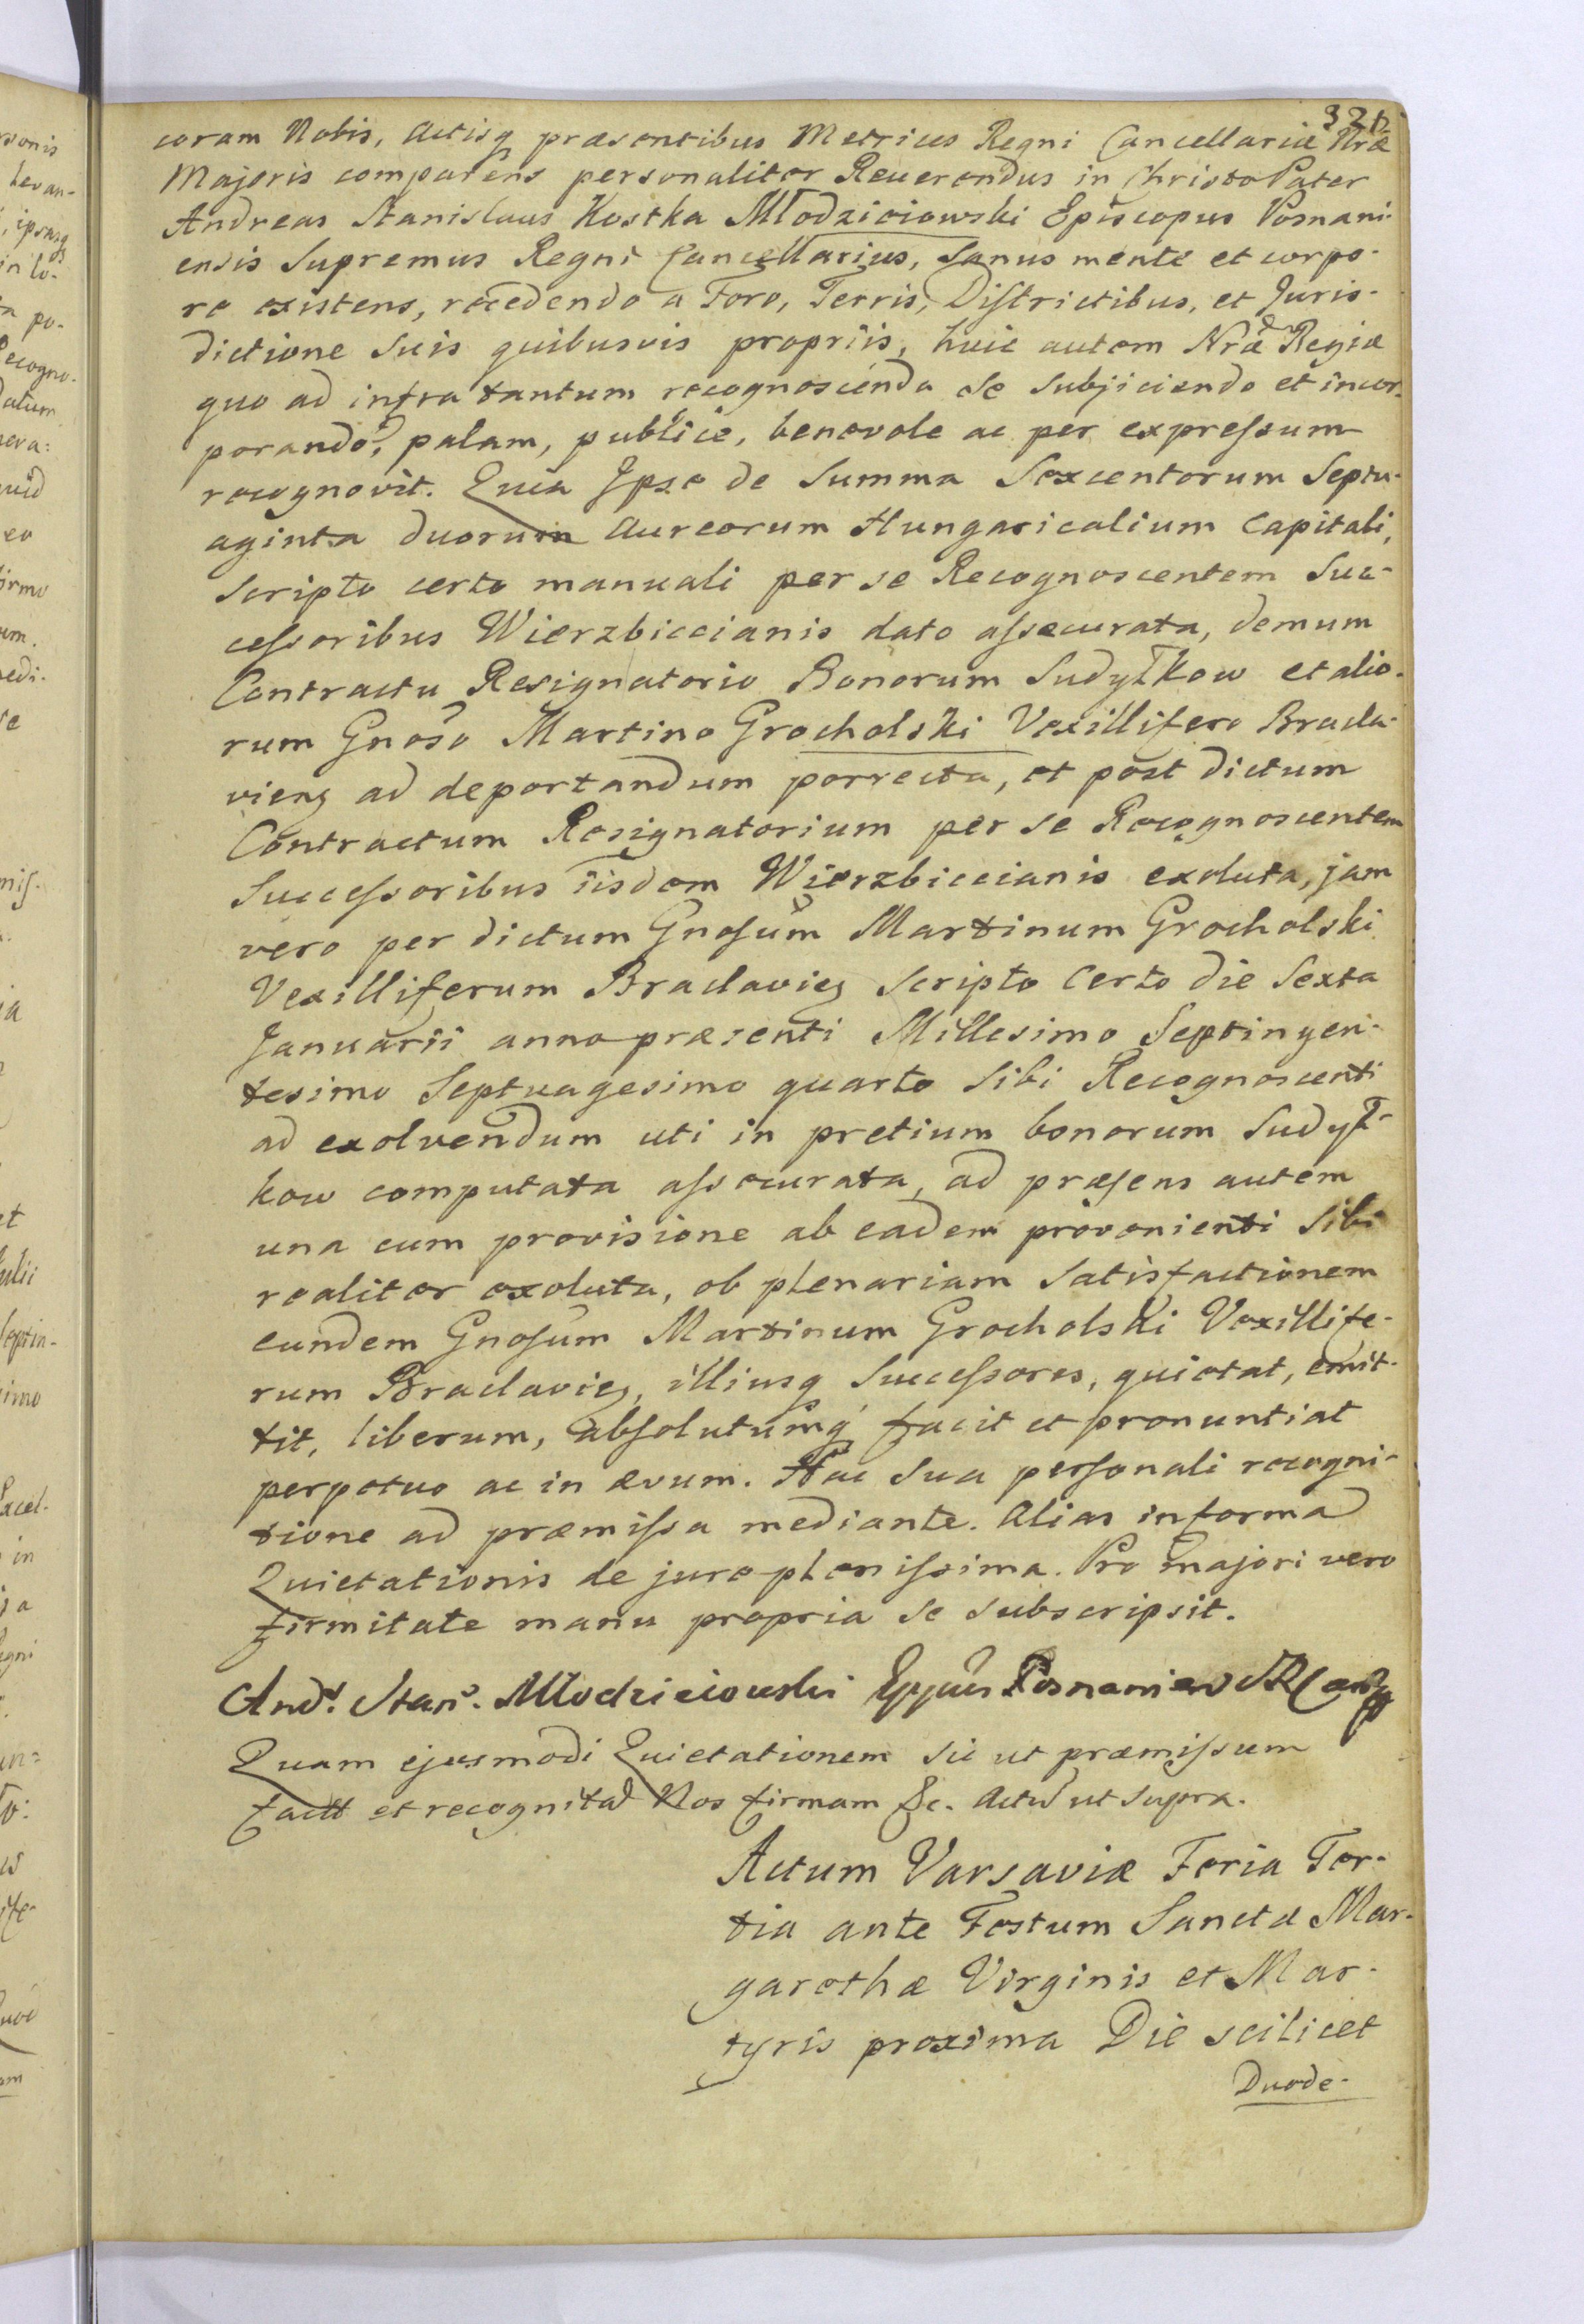 coram Nobis, Actisq̃ præsentibus Metrices Regni Cancellariæ Nræ
Majoris comparens personaliter Reuerendus in Christo Pater
Andreas Stanislaus Kostka Młodzieiowski Episcopus Posnani-
ensis Supremus Regni Cancellarius, Sanus mente et corpo-
re existens, recedendo a Foro, Terris, Districtibus, et Juris-
dictione Suis quibusvis propriis, huic autem Nræ Regiæ
quo ad infra tantum recognoscenda Se Subjiciendo et incor-
porando, palam, publicè, benevole ac per expressum
recognovit. Quia Ipse de Summa Sexcentorum Septu-
aginta duorum Aureorum Hungaricalium Capitali,
Scripto certo manuali per se Recognoscentem Suc-
cessoribus Wierzbiccianis dato assecurata, demum
Contractu Resignatorio Bonorum Sudyłkow et alio-
rum Gnoso Martino Grocholski Vexillifero Bracla-
vieng ad deportandum porrecta, et post dictum
Contractum Resignatorium per se Recognoscentem
Successoribus iisdem Wierzbiccianis exoluta, jam
vero per dictum Gnosum Martinum Grocholski
Vexilliferum Braclavieg Scripto Certo die Sexta
Januarii anno præsenti Millesimo Septingen-
tesimo Septuagesimo quarto Sibi Recognoscenti
ad exolvendum uti in pretium bonorum Sudył-
kow computata assecurata, ad præsens autem
una cum provisione ab eadem provenienti Sibi
realiter exoluta, ob plenariam Satisfactionem
eundem Gnosum Martinum Grocholski Vexillife-
rum Braclavieg, illiusq̃ Successores, quietat, emit-
tit, liberum, absolutumq̃ facit et pronuntiat
perpetuo ac in ævum. Hac Sua personali recogni-
tione ad præmissa mediante. Alias in forma
Quietationis de jure plenissima. Pro majori vero
firmitate manu propria se subscripsit.
And. Stan. Młodzieiowski Eppus Posnanien SR Canc
Quam ejusmodi Quietationem sic ut præmissum
fact et recognita Nos firmam &c. Actũ ut Supra.
Actum Varsaviæ Feria Ter-
tia ante Festum Sanctæ Mar-
garethæ Virginis et Mar-
tyris proxima Die scilicet
Duode-